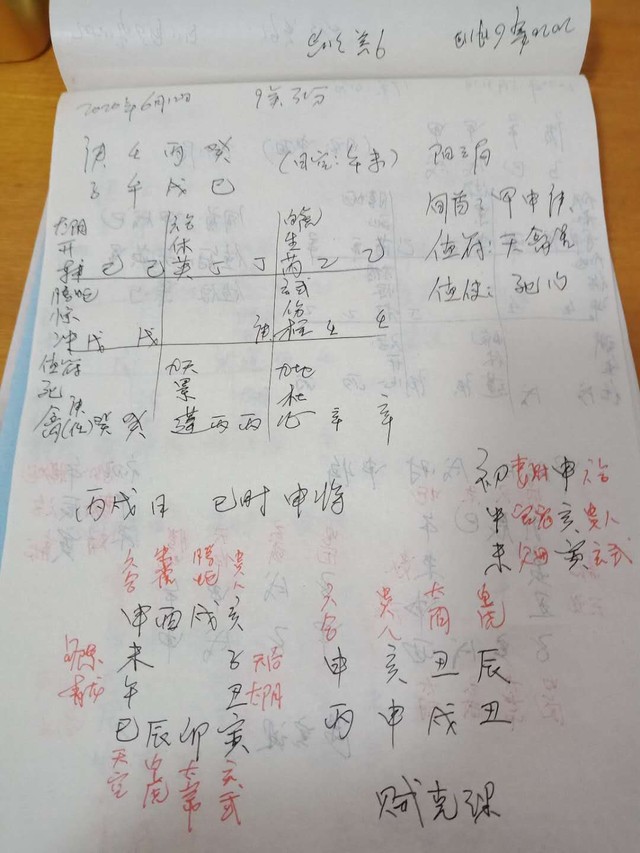 2020年6月12日 9点31分
庚 壬 丙 癸 (日空:午未) 阳三局
子 午 戌 巳 旬首:甲申庚
值符:天禽星
值使:死门
太阴 六合 白虎
开 休 生
辅 己 己 英 丁 丁 芮 乙 乙
腾蛇 玄武
惊 伤
冲 戊 戊 庚 柱 壬 壬
值符 九天 九地
死 景 杜
禽 庚 癸 癸 蓬 丙 丙 心 辛 辛
丙戌日 巳时 申将
初 妻财 申 六合
中 官鬼 亥 贵人
末 父母 寅 玄武
六合 朱雀 腾蛇 贵人
申 酉 戌 亥
勾陈 未 子 天后
青龙 午 丑 太阴
巳 辰 卯 寅
天空 白虎 太常 玄武
六合 贵人 太阴 白虎
申 亥 丑 辰
丙 申 戌 丑
贼克课